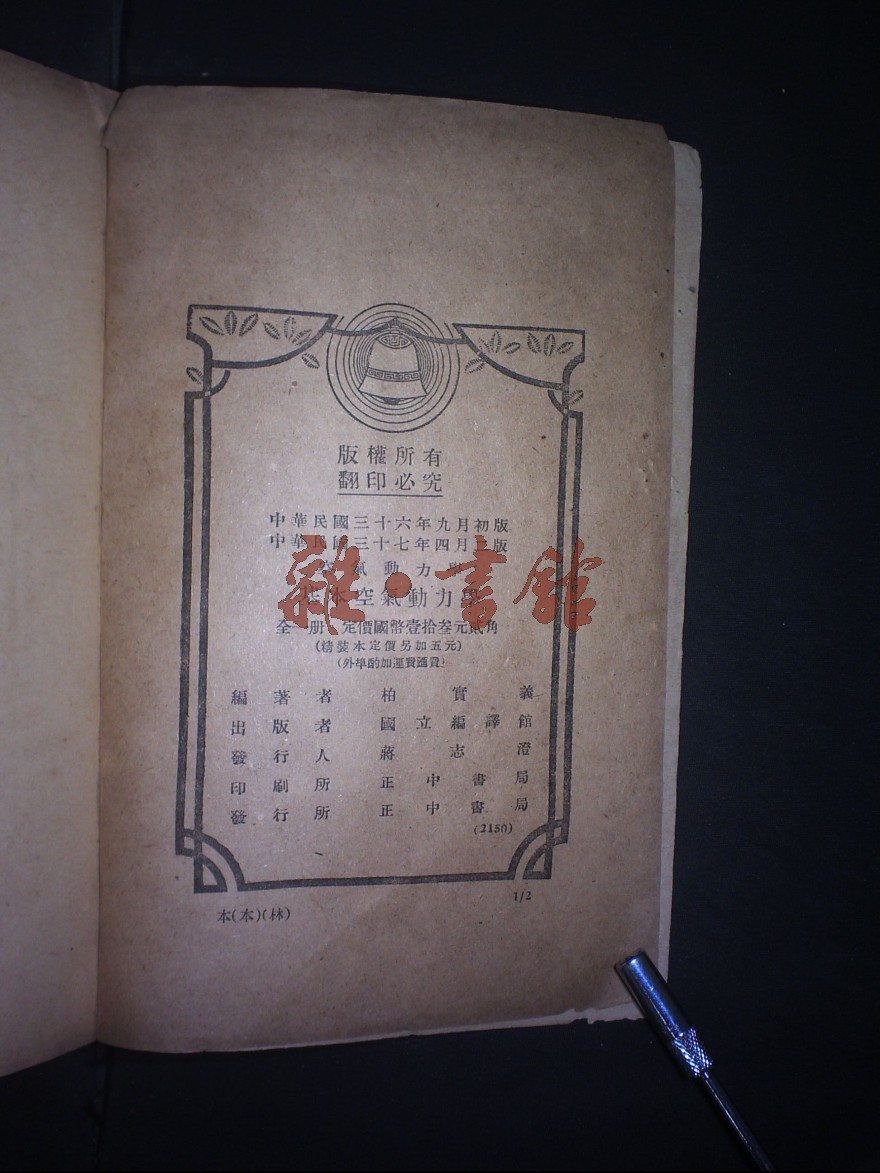 版權所有
翻印必究
中華民國三十六年九月初版
中華民國三十七年四月三版
空氣動力學
基本空氣動力學
全一册 定價國幣壹拾叁元貳角
(精裝本定價另加五元)
(外埠酌加運費滙費)
編著者 柏實義
出版者 國立編譯館
發行人 蔣志澄
印刷所 正中書局
發行所 正中書局
(2150)
1/2
本(本)(林)
雜·書館